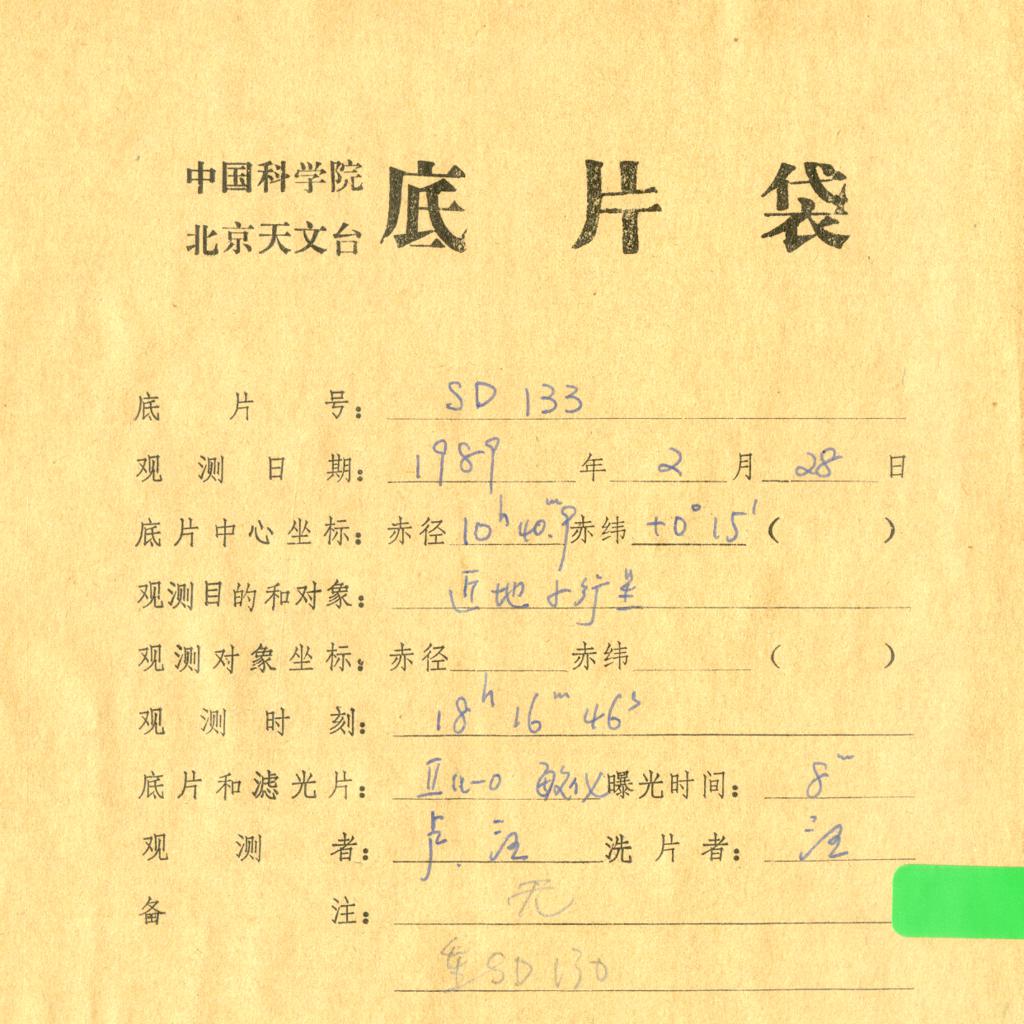 中国科学院
北京天文台
底片袋
底片号： SD 133
观测日期： 1989 年 2 月 28 日
底片中心坐标：赤径 10h 40.m9 赤纬 +0° 15' （ ）
观测目的和对象： 近地小行星
观测对象坐标：赤径 赤纬 （ ）
观测时刻： 18h 16m 46s
底片和滤光片： IIa-O 敏化 曝光时间： 8m
观测者： 卢. 汪 洗片者： 汪
备注： 无
重SD 130